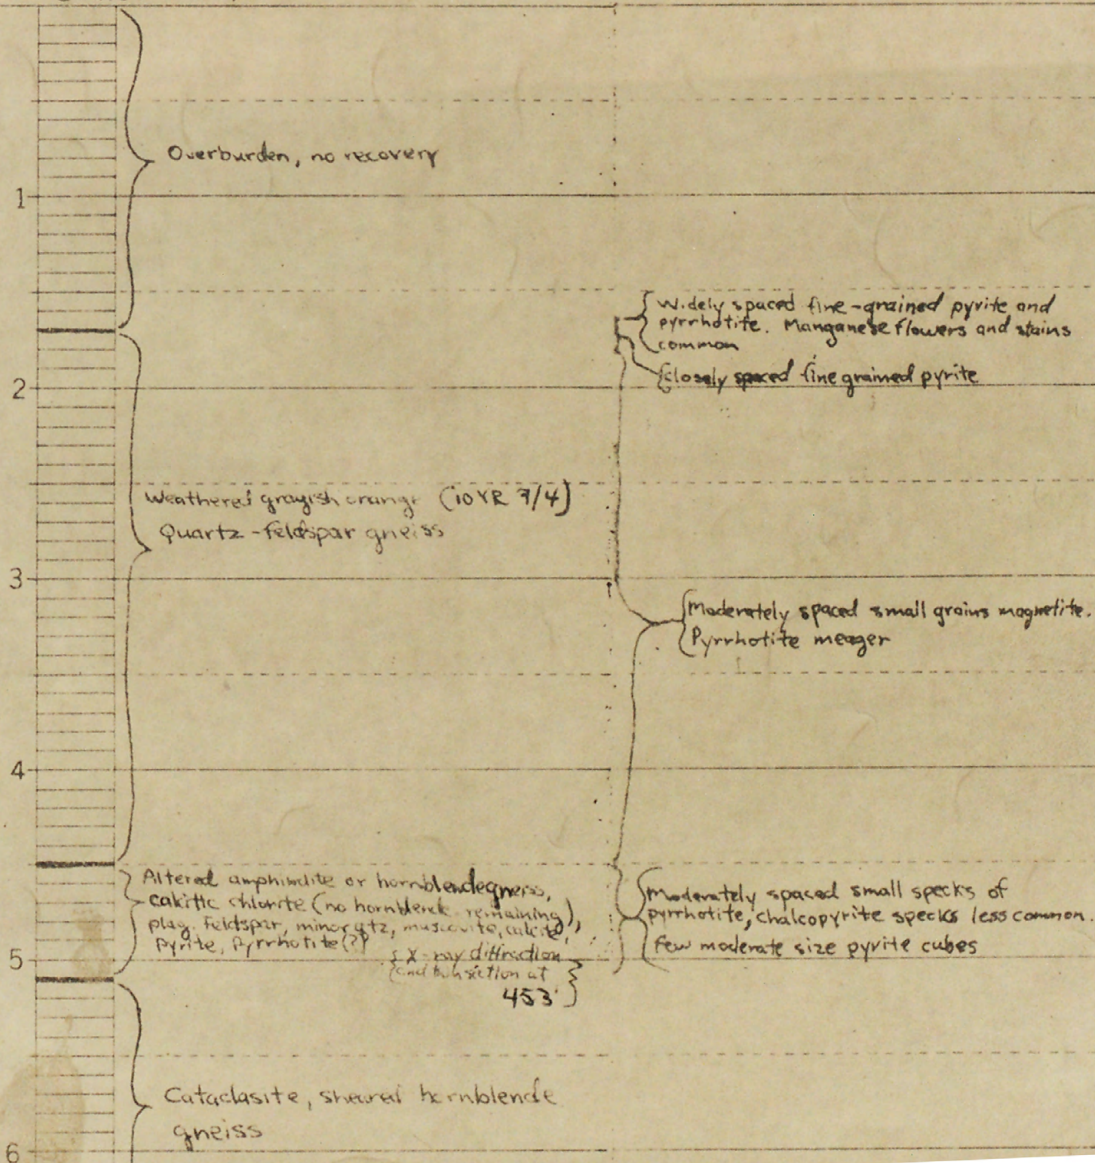 Overburden, no recovery
1
Widely spaced fine-grained pyrite and
pyrrhotite. Manganese flowers and stains
common
Closely spaced fine grained pyrite
2
Weathered grayish orange (10YR 7/4)
Quartz-feldspar gneiss
3
Moderately spaced small grains magnetite.
Pyrrhotite meager
4
Altered amphibolite or hornblende gneiss,
calcitic chlorite (no hornblende remaining),
plag. feldspar, minor qtz, muscovite, calcite,
pyrite, pyrrhotite(?)
X-ray diffraction
and thin section at
453'
Moderately spaced small specks of
pyrrhotite, chalcopyrite specks less common.
Few moderate size pyrite cubes
5
Cataclasite, sheared hornblende
gneiss
6